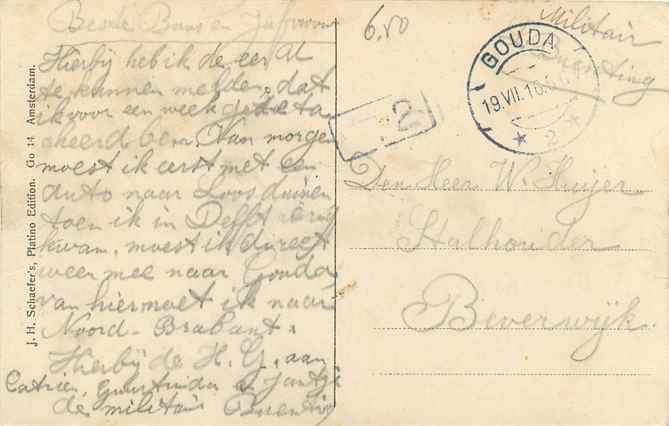 Beste Baas en Juffrouw
Hierbij heb ik de eer U
te kunnen melden, dat
ik voor een week gedeta
cheerd ben. Van morgen
moest ik eerst met een
auto naar Loosduinen
toen ik in Delft terug
kwam, moest ik direct
weer mee naar Gouda,
van hier moet ik naar
Noord-Brabant.
Hierbij de H. G. aan
Catrien, en Jantje
de militair Buenting
J. H. Schaefer's, Platino Edition. Go 14 Amsterdam.
6.50
Militair
Buenting
GOUDA
19.VII.16.
2
2
Den Heer W. Huijer
Stalhouder
Beverwijk